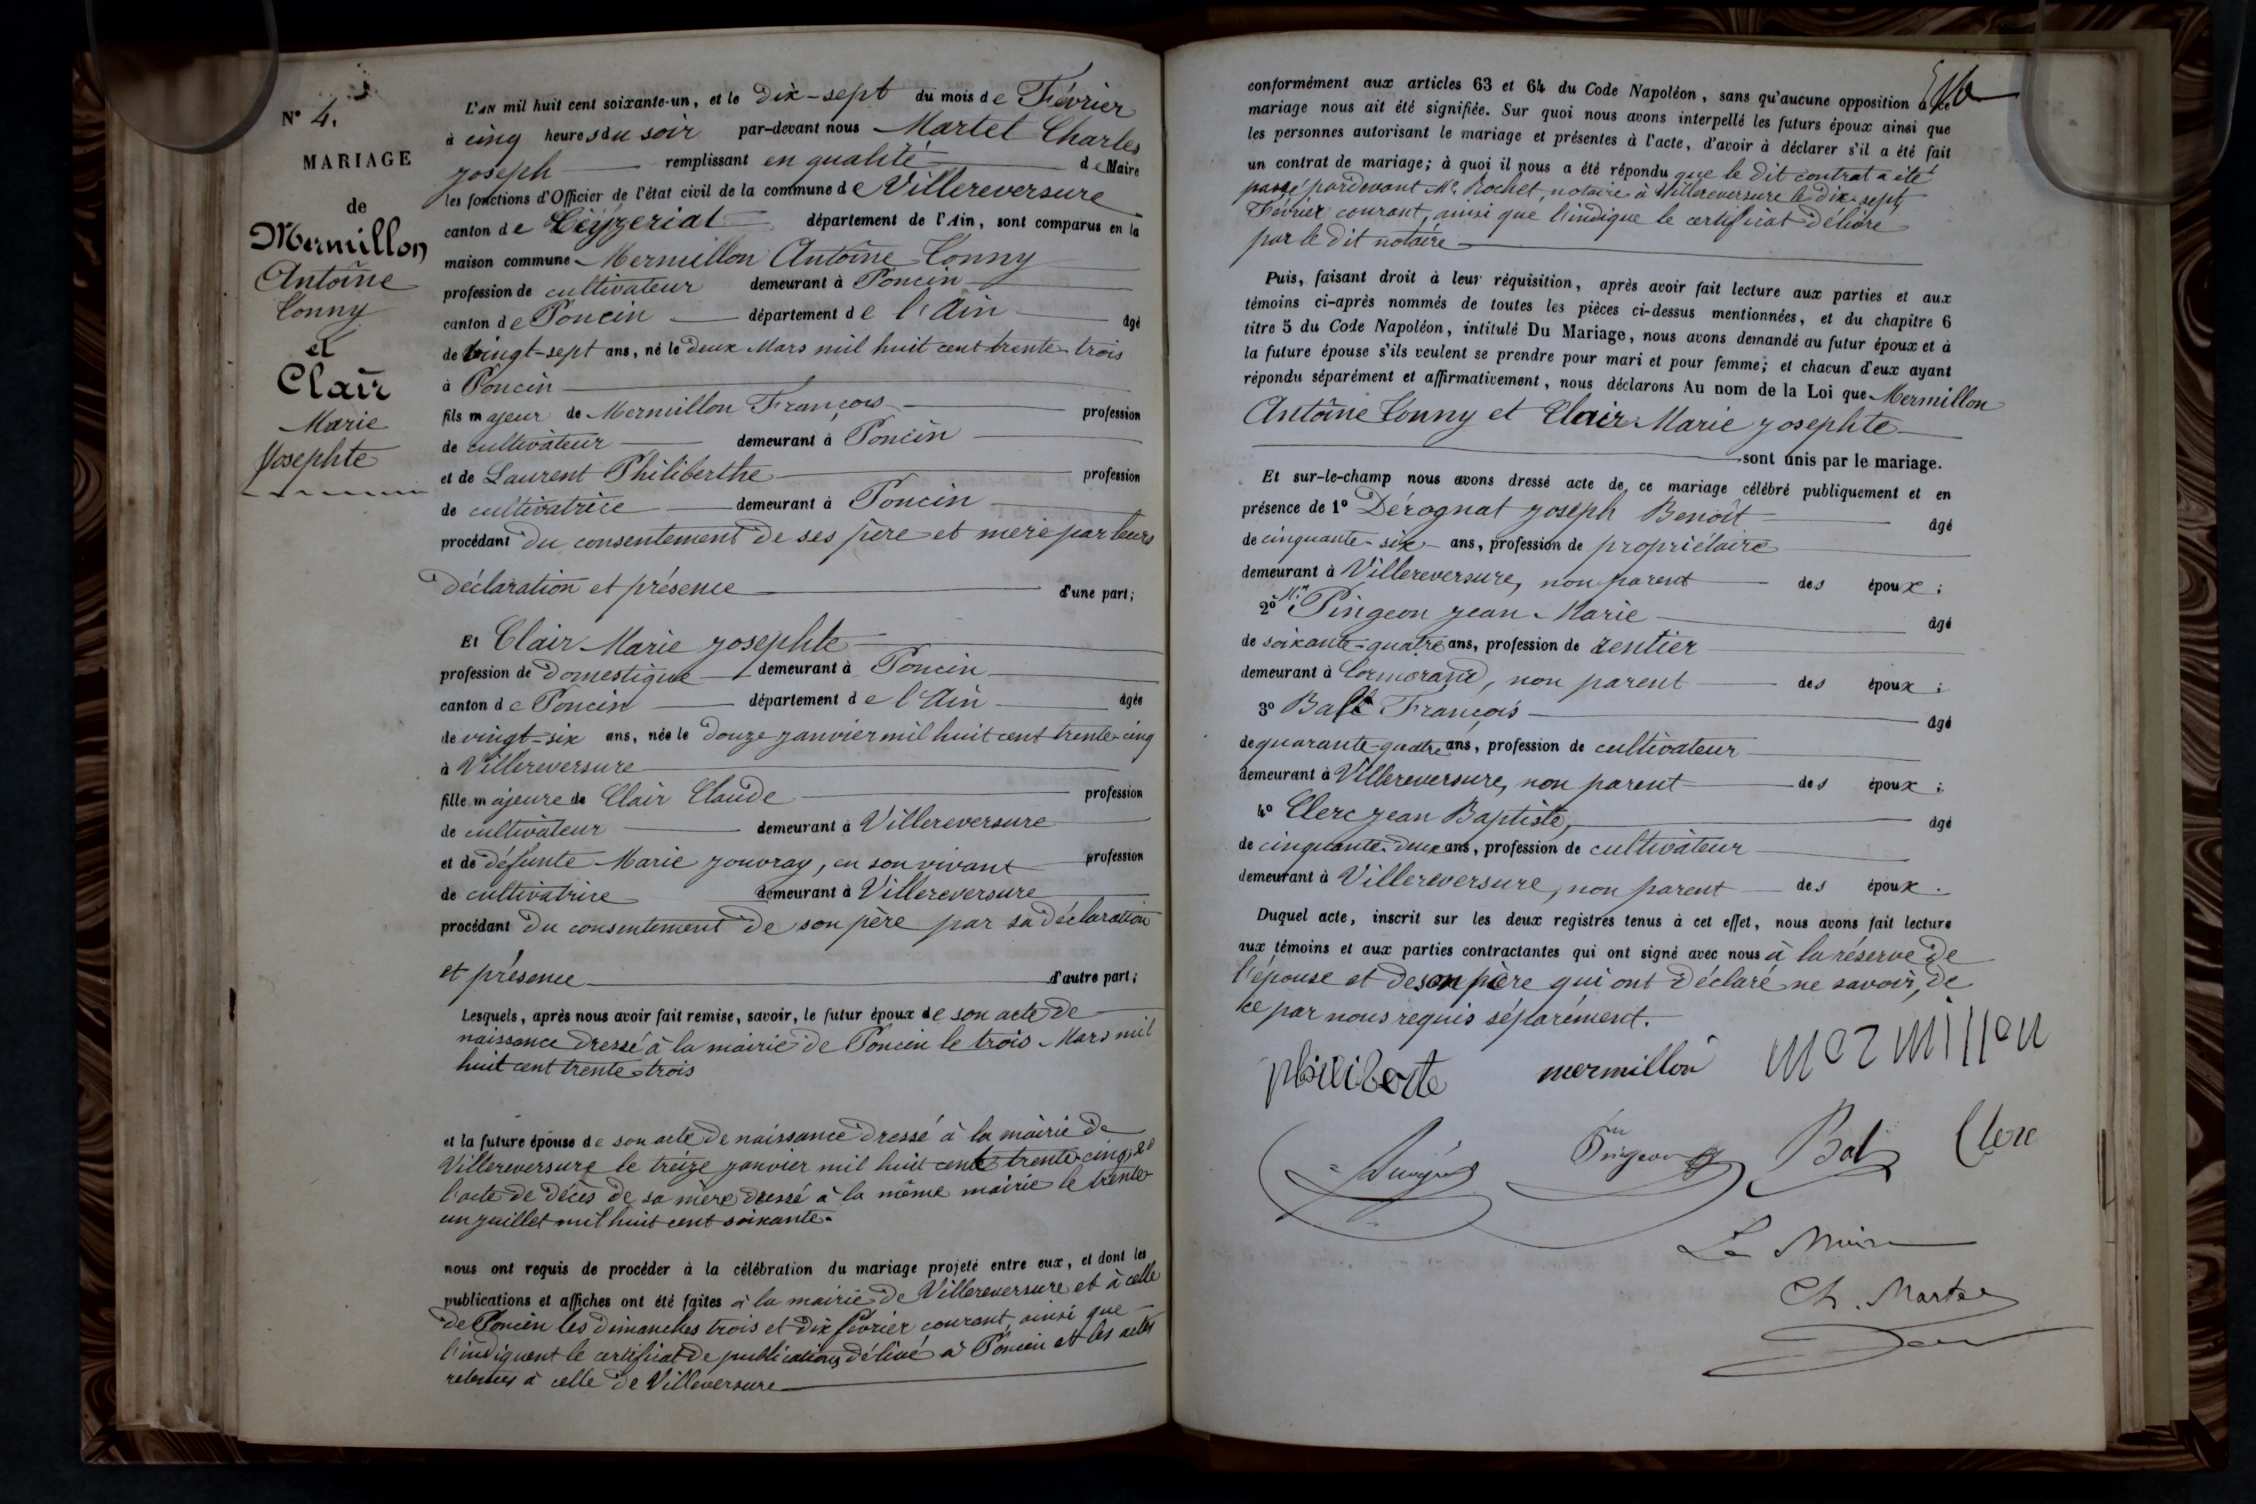 N° 4.
MARIAGE
de
Mermillon
Antoine
Tonny
et
Clair
Marie
Josephte
L'AN mil huit cent soixante-un, et le dix-sept du mois de Février
à cinq heures du soir par-devant nous Martel Charles
Joseph remplissant en qualité de Maire
les fonctions d'Officier de l'état civil de la commune de Villereversure
canton de Ceyzeriat département de l'Ain, sont comparus en la
maison commune Mermillon Antoine Tonny
profession de cultivateur demeurant à Poncin
canton de Poncin département de l'Ain âgé
de vingt-sept ans, né le deux Mars mil huit cent trente trois
à Poncin
fils majeur de Mermillon François profession
de cultivateur demeurant à Poncin
et de Laurent Philiberthe profession
de cultivatrice demeurant à Poncin
procédant du consentement de ses père et mère par leurs
déclaration et présence d'une part;
Et Clair Marie Josephte
profession de domestique demeurant à Poncin
canton de Poncin département de l'Ain âgée
de vingt-six ans, née le douze janvier mil huit cent trente-cinq
à Villereversure
fille majeure de Clair Claude profession
de cultivateur demeurant à Villereversure
et de défunte Marie Jouvray, en son vivant profession
de cultivatrice demeurant à Villereversure
procédant du consentement de son père par sa déclaration
et présence d'autre part;
Lesquels, après nous avoir fait remise, savoir, le futur époux de son acte de
naissance dressé à la mairie de Poncin le trois Mars mil
huit cent trente-trois
et la future épouse de son acte de naissance dressé à la mairie de
Villereversure le treize janvier mil huit cent trente-cinq, et
l'acte de décès de sa mère dressé à la même mairie le trente
un juillet mil huit cent soixante.
nous ont requis de procéder à la célébration du mariage projeté entre eux, et dont les
publications et affiches ont été faites à la mairie de Villereversure et à celle
de Poncin les dimanches trois et dix février courant, ainsi que
l'indiquent le certificat de publications délivré à Poncin et les actes
retenus à celle de Villeversure
conformément aux articles 63 et 64 du Code Napoléon, sans qu'aucune opposition à ce
mariage nous ait été signifiée. Sur quoi nous avons interpellé les futurs époux ainsi que
les personnes autorisant le mariage et présentes à l'acte, d'avoir à déclarer s'il a été fait
un contrat de mariage; à quoi il nous a été répondu que le dit contrat a été
passé pardevant Me Rochet, notaire à Villereversure le dix-sept
Février courant, ainsi que l'indique le certificat délivré
par le dit notaire
Puis, faisant droit à leur réquisition, après avoir fait lecture aux parties et aux
témoins ci-après nommés de toutes les pièces ci-dessus mentionnées, et du chapitre 6
titre 5 du Code Napoléon, intitulé Du Mariage, nous avons demandé au futur époux et à
la future épouse s'ils veulent se prendre pour mari et pour femme; et chacun d'eux ayant
répondu séparément et affirmativement, nous déclarons Au nom de la Loi que Mermillon
Antoine Tonny et Clair Marie Josephte
sont unis par le mariage.
Et sur-le-champ nous avons dressé acte de ce mariage célébré publiquement et en
présence de 1° Dérognat Joseph Benoît âgé
de cinquante-six ans, profession de propriétaire
demeurant à Villereversure, non parent des époux;
2° Pingeon Jean-Marie âgé
de soixante-quatre ans, profession de rentier
demeurant à Cormorand, non parent des époux;
3° François âgé
de quarante-quatre ans, profession de cultivateur
demeurant à Villereversure, non parent des époux;
4° Clerc Jean Baptiste, âgé
de cinquante-deux ans, profession de cultivateur
demeurant à Villereversure, non parent des époux.
Duquel acte, inscrit sur les deux registres tenus à cet effet, nous avons fait lecture
aux témoins et aux parties contractantes qui ont signé avec nous à la réserve de
l'épouse et de son père qui ont déclaré ne savoir, de
ce par nous requis séparément.
philiberte mermillon mermillon
Pingeon Bal Clerc
Le Maire
Ch. Martel